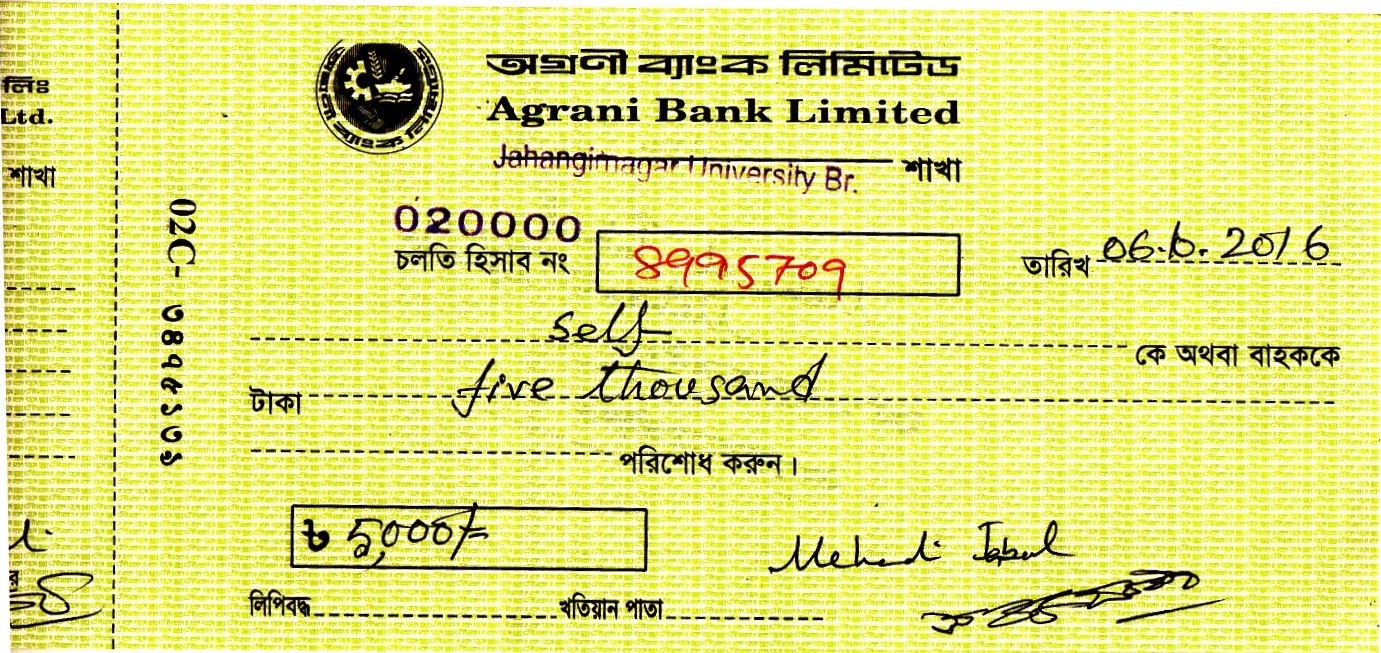 লিঃ
Ltd.
শাখা
অগ্রণী ব্যাংক লিমিটেড
অগ্রণী ব্যাংক লিমিটেড
Agrani Bank Limited
Jahangirnagar University Br. শাখা
020000
চলতি হিসাব নং 8995709 তারিখ 06.6.2016
02C- ৩৪৭৫১৩১
self কে অথবা বাহককে
টাকা five thousand
পরিশোধ করুন।
৳ 5,000/=
Mehadi Iqbal
লিপিবদ্ধ খতিয়ান পাতা